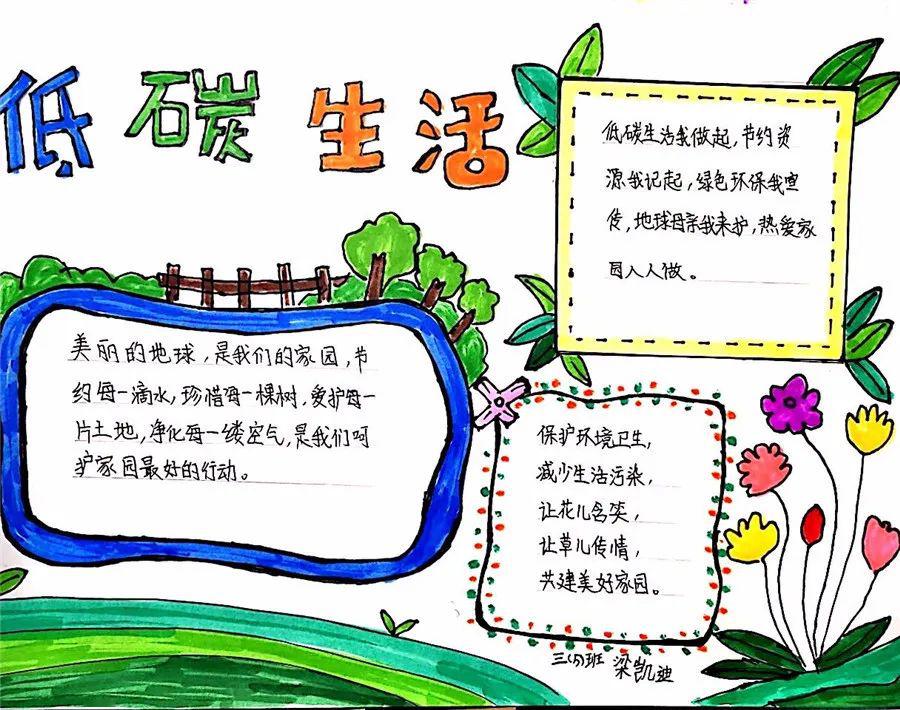 低碳生活
低碳生活我做起,节约资
源我记起,绿色环保我宣
传,地球母亲我来护,热爱家
园人人做。
美丽的地球,是我们的家园,节
约每一滴水,珍惜每一棵树,爱护每一
片土地,净化每一缕空气,是我们呵
护家园最好的行动。
保护环境卫生,
减少生活污染,
让花儿含笑,
让草儿传情,
共建美好家园。
三(5)班 梁凯迪